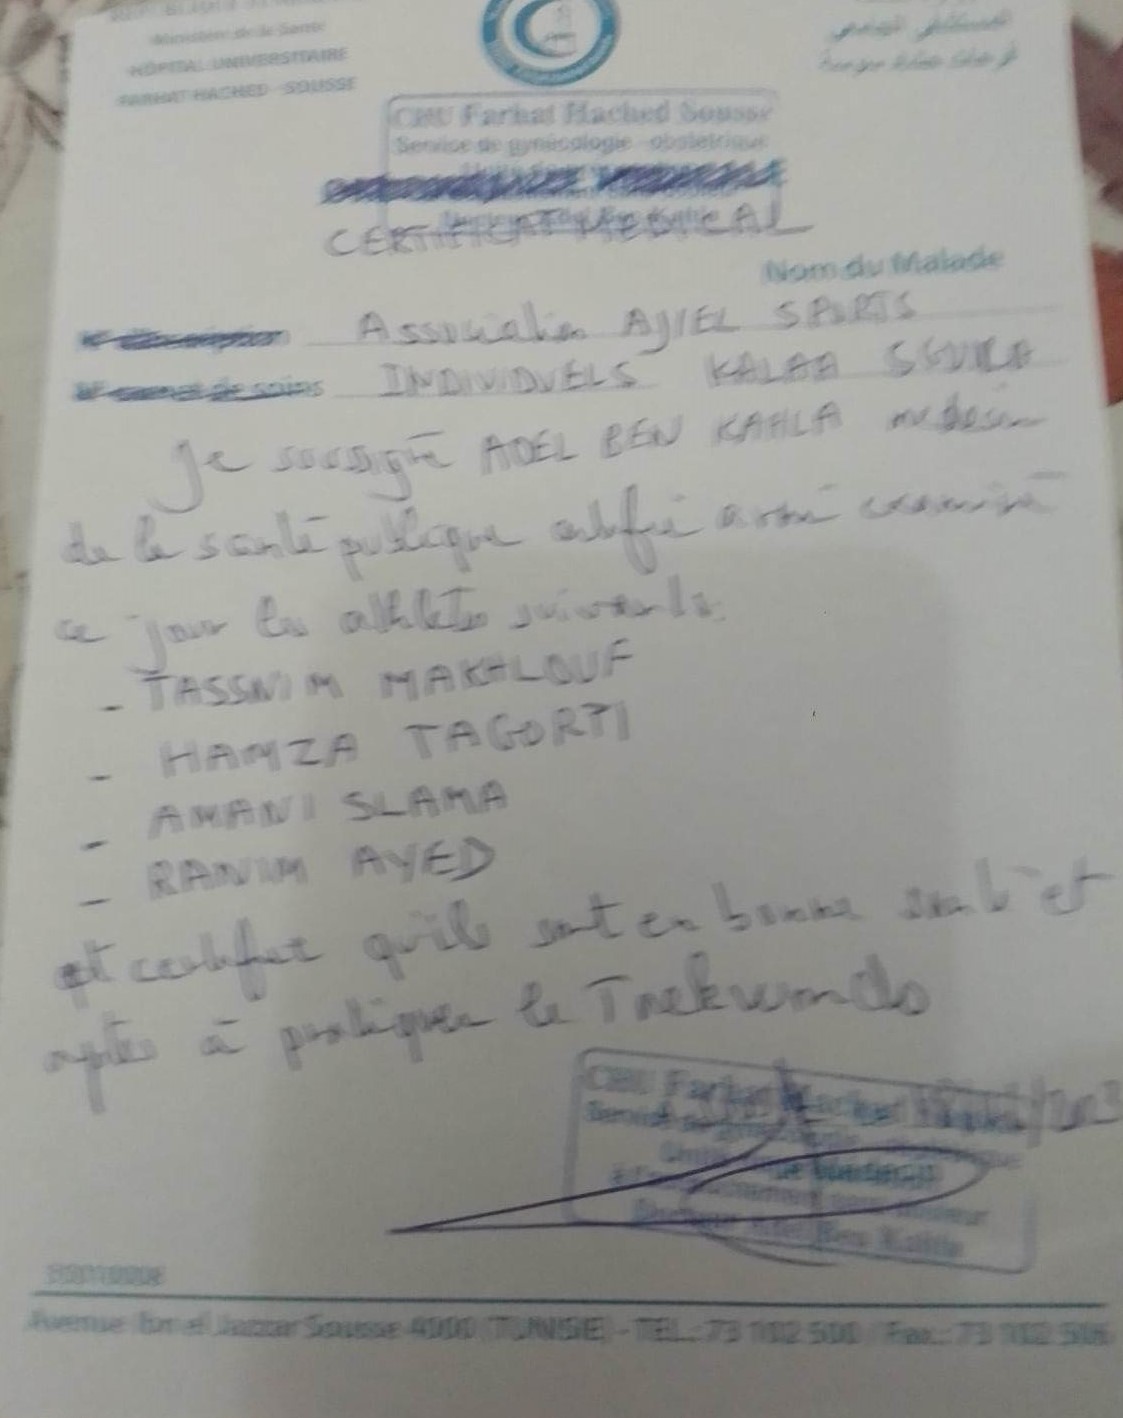 Ministère de la Santé
HOPITAL UNIVERSITAIRE
FARHAT HACHED - SOUSSE
CHU Farhat Hached Sousse
Service de gynécologie - obstétrique
CERTIFICAT MEDICAL
Nom du Malade
Association AJIEL SPORTS
INDIVIDUELS KALAA SGUIRA
Je soussigné ADEL BEN KAHLA médecin
de la santé publique certifie avoir examiné
ce jour les athlètes suivants:
- TASSNIM MAKHLOUF
- HAMZA TAGORTI
- AMANI SLAMA
- RANIM AYED
et certifie qu'ils sont en bonne santé et
aptes à pratiquer le Taekwondo
CHU Farhat Hached
Docteur Adel Ben Kahla
Avenue Ibn el Jazzar Sousse 4000 (TUNISIE) - TEL.: 73 102 500 / Fax.: 73 102 506